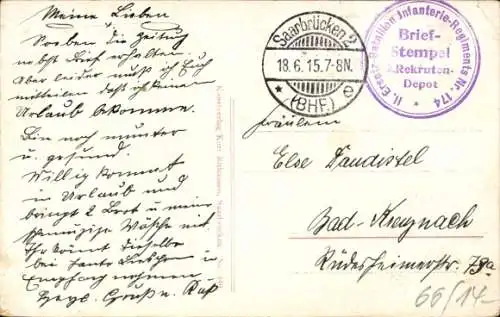 Meine Lieben
Soeben die Zeitung
nebst Brief erhalten.
Aber leider muß ich Euch
mitteilen daß ich keinen
Urlaub bekomme.
Bin noch munter
u. gesund.
Willy kommt
in Urlaub und
bringt 2 Brot u meine
schmutzige Wäsche mit
Ihr könnt dieselbe
bei Tante Lieschen in
Empfang nehmen
Herzl. Gruß u. Kuß
Saarbrücken 2
18.6.15.7-8N.
* (BHF.) e
II. Ersatz-Bataillon Infanterie-Regiments Nr. 174
Brief-
Stempel
2. Rekruten-
Depot
*
Fräulein
Else Daudistel
Bad-Kreuznach
Rüdesheimerstr. 79a
66/14-
Kunstverlag Kurt
Saarbrücken